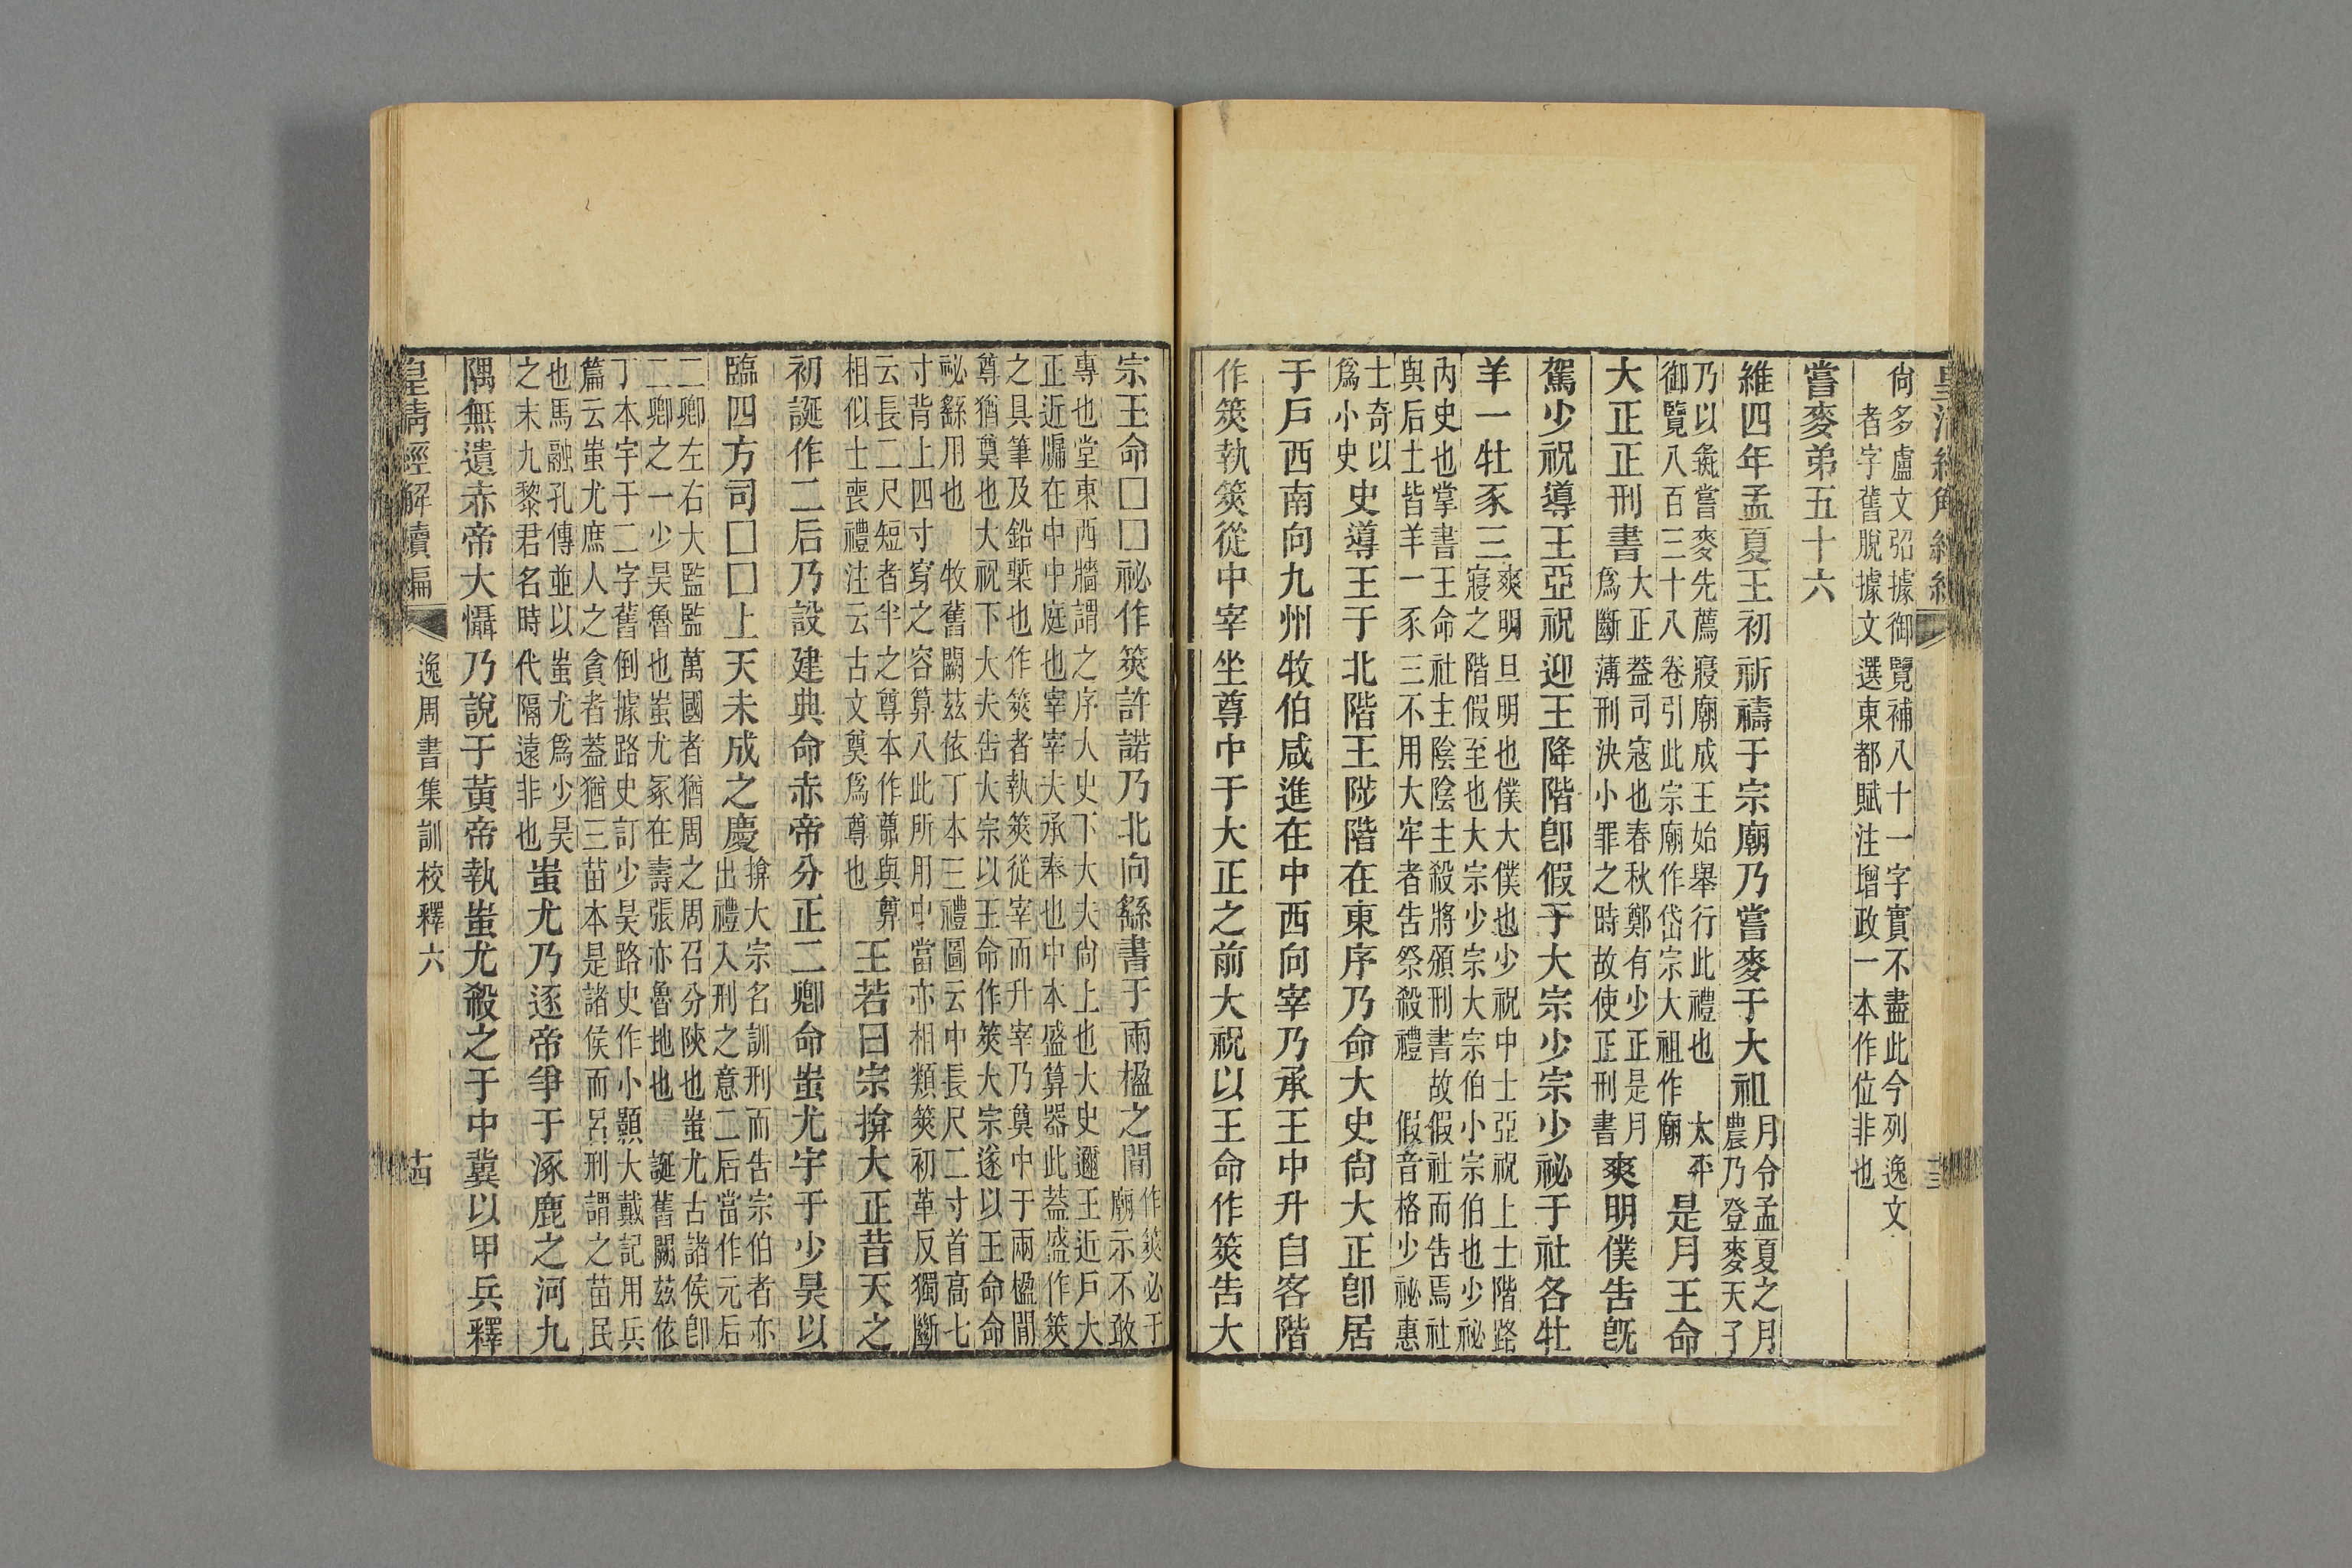 尙多盧文弨據御覽補八十一字實不盡此今列逸文
者字舊脫據文選東都賦注增政一本作位非也
嘗麥弟五十六
維四年孟夏王初祈禱于宗廟乃嘗麥于大祖月令孟夏之月農乃登麥天子
乃以彘嘗麥先薦寢廟成王始舉行此禮也　太平御覽八百三十八卷引此宗廟作岱宗大祖作廟　是月王命
大正正刑書大正蓋司寇也春秋鄭有少正是月爲斷薄刑決小罪之時故使正刑書爽明僕告旣
駕少祝導王亞祝迎王降階卽假于大宗少宗少祕于社各牡
羊一牡豕三爽明旦明也僕大僕也少祝中士亞祝上士階路寢之階假至也大宗少宗大宗伯小宗伯也少祕
內史也掌書王命社主陰陰主殺將頒刑書故假社而告焉社與后土皆羊一豕三不用大牢者告祭殺禮　假音格少祕惠
士奇以爲小史史導王于北階王陟階在東序乃命大史尙大正卽居
于戶西南向九州牧伯咸進在中西向宰乃承王中升自客階
作筴執筴從中宰坐尊中于大正之前大祝以王命作筴告大
宗王命□□祕作筴許諾乃北向繇書于兩楹之閒作筴必于廟示不敢
專也堂東西牆謂之序大史下大夫尙上也大史邇王近戶大正近牖在中中庭也宰宰夫承奉也中本盛算器此蓋盛作筴
之具筆及鉛槧也作筴者執筴從宰而升宰乃奠中于兩楹閒尊猶奠也大祝下大夫告大宗以王命作筴大宗遂以王命命
祕繇用也　牧舊闕茲依丁本三禮圖云中長尺二寸首高七寸背上四寸穿之容算八此所用中當亦相類筴初革反獨斷
云長二尺短者半之尊本作尊與算相似士喪禮注云古文奠爲尊也王若曰宗揜大正昔天之
初誕作二后乃設建典命赤帝分正二卿命蚩尤宇于少昊以
臨四方司□□上天未成之慶揜大宗名訓刑而告宗伯者亦出禮入刑之意二后當作元后
二卿左右大監監萬國者猶周之周召分陝也蚩尤古諸侯卽二卿之一少昊魯也蚩尤冢在壽張亦魯地也　誕舊闕茲依
丁本宇于二字舊倒據路史訂少昊路史作小顥大戴記用兵篇云蚩尤庶人之貪者蓋猶三苗本是諸侯而呂刑謂之苗民
也馬融孔傳並以蚩尤爲少昊之末九黎君名時代隔遠非也蚩尤乃逐帝爭于涿鹿之河九
隅無遺赤帝大懾乃說于黃帝執蚩尤殺之于中冀以甲兵釋
皇淸經解續編
逸周書集訓校釋六
十四